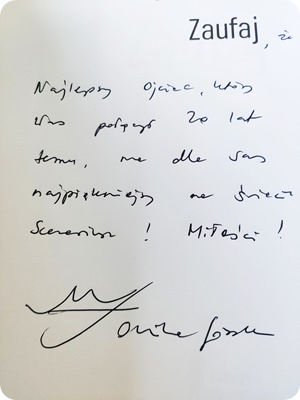 Zaufaj, że
Najlepszy Ojciec, który
Was połączył 20 lat
temu, ma dla Was
najpiękniejszy na świecie
Scenariusz! Miłości!